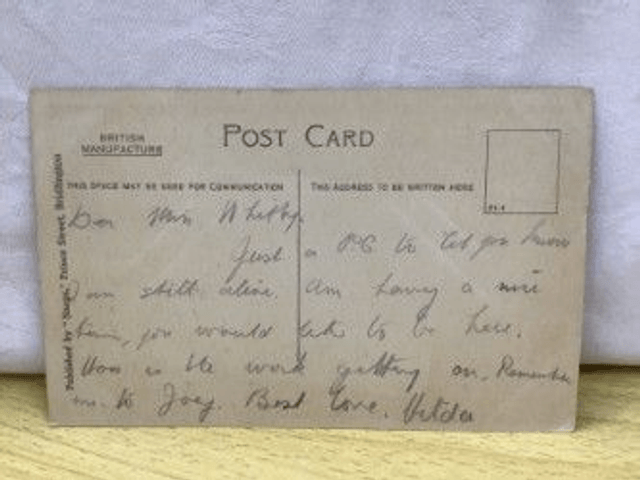 BRITISH
MANUFACTURE
POST CARD
THIS SPACE MAY BE USED FOR COMMUNICATION
THE ADDRESS TO BE WRITTEN HERE
Published by "Snaps," Prince Street, Bridlington
Dear Mrs
Just a P.C. to let you know
I am still alive. Am having a nice
time, you would like to be here.
How is the work getting on. Remember
me to Joey. Best love. Hilda